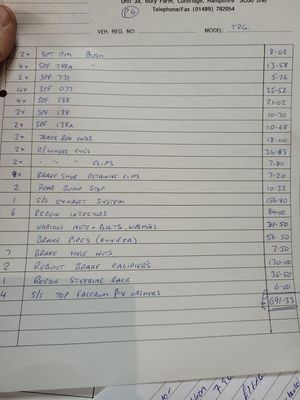 Unit 3a, Bury Farm, Curbridge, Hampshire SO30 2HB
Telephone/Fax: (01489) 782054
P6
VEH. REG. NO. MODEL: TR6.
2x SPF 17M BUSH 8-62
4x SPF 288A " 13-58
2x SPF 771 5-26
4x SPF 077 35-52
4x SPF 288 21-02
2x SPF 138 10-70
2x SPF 138A 10-68
2x TRACK ROD ENDS 18-00
2x R/WHEEL CYL'S 36-83
2x " " " CLIPS 7-80
4x BRAKE SHOE RETAINING CLIPS 7-20
2 REAR BUMP STOP 10-32
1 S/S EXHAUST SYSTEM 156-80
6 RECON INJECTORS 84-00
VARIOUS NUTS + BOLTS, WASHERS 31-50
BRAKE PIPE'S (KUNIFER) 58-50
7 BRAKE HOSE NUTS 3-50
2 REBUILT BRAKE CALIPIER'S 130-00
1 RECON STEERING RACK 36-50
4 S/S TOP FALCRUM PIN WASHERS 6-00
£691-33